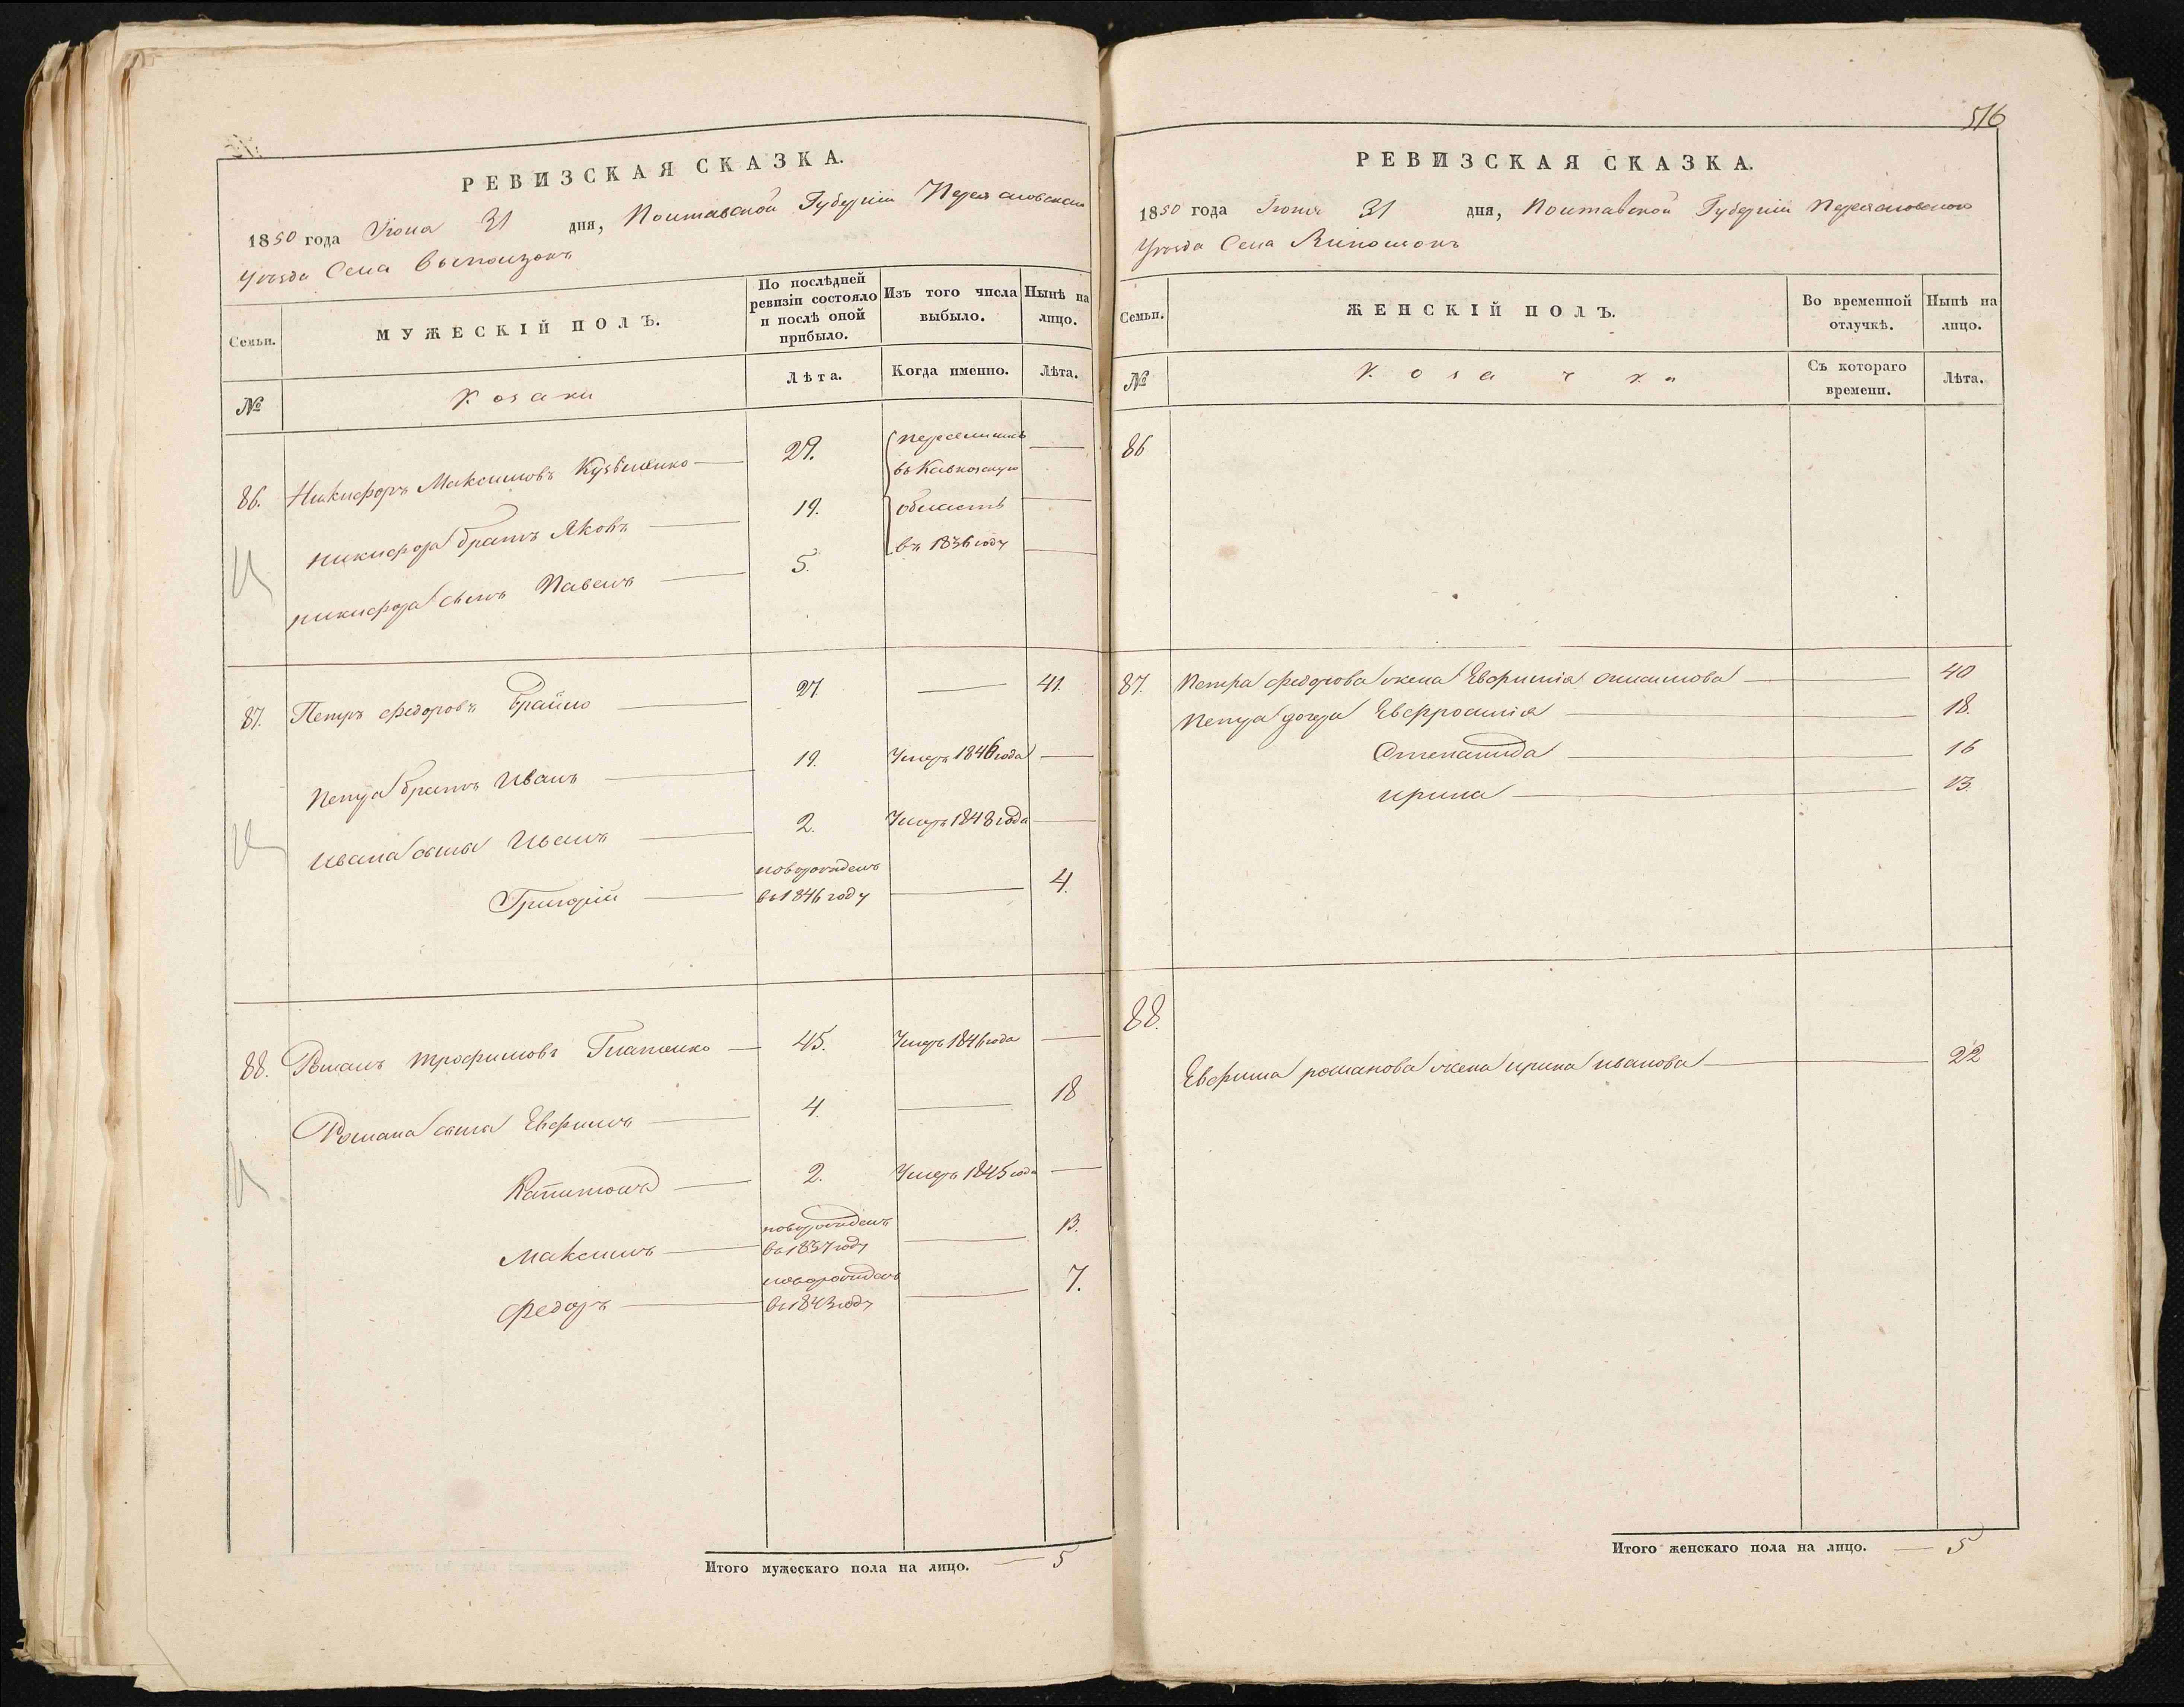 РЕВИЗСКАЯ СКАЗКА.
1850 года Июня 31 дня, Полтавской Губернии Переясловскаго
Уезда Села Выползокъ
Семьи.
МУЖЕСКІЙ ПОЛЪ.
По послѣдней ревизіи состояло и послѣ оной прибыло.
Изъ того числа выбыло.
Нынѣ на лицо.
№
Козаки
Лѣта.
Когда именно.
Лѣта.
86. Никифоръ Максимовъ Кузьменко — 29. переселились —
въ Кавказскую
никифора братъ Яковъ — 19. область —
никифора сынъ Павелъ — 5. въ 1836 году —
87. Петръ Федоровъ — 27 — 41.
Петра братъ Иванъ — 19. Умеръ 1846 года —
Ивана сынъ Иванъ — 2. Умеръ 1848 года —
Григорій — новорожденъ
въ 1846 году — 4.
88. Романъ трофимовъ — 45. Умеръ 1846 года —
Романа сынъ Евфимъ — 4 — 18
Капитонъ — 2. Умеръ 1845 года —
Максимъ — новорожденъ
въ 1837 году — 13.
Федоръ — новорожденъ
въ 1843 году — 7.
Итого мужескаго пола на лицо. — 5
516
РЕВИЗСКАЯ СКАЗКА.
1850 года Июня 31 дня, Полтавской Губерніи Переясловского
Уезда Села
Семьи.
ЖЕНСКІЙ ПОЛЪ.
Во временной отлучкѣ.
Нынѣ на лицо.
№
Козачки
Съ котораго времени.
Лѣта.
86
87. Петра Федорова жена Евфимія — 40
Петра дочери Евфросинія — 18.
Степанида — 16
ирина — 13.
88.
Евфима романова жена ирина иванова — 22
Итого женскаго пола на лицо. — 5